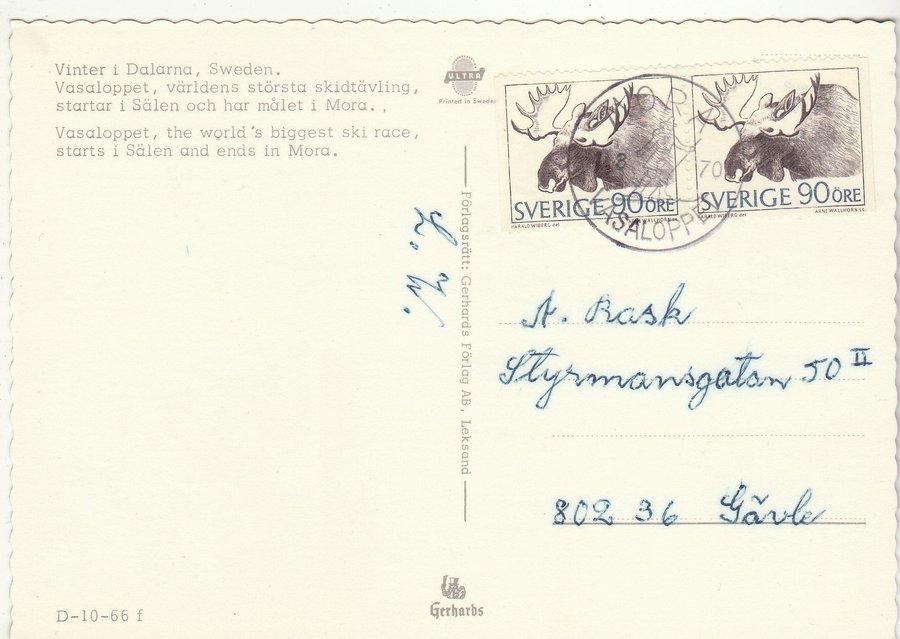 Vinter i Dalarna, Sweden.
Vasaloppet, världens största skidtävling,
startar i Sälen och har målet i Mora. ,
Vasaloppet, the world's biggest ski race,
starts i Sälen and ends in Mora.
ULTRA
Printed in Sweden
SVERIGE 90 ÖRE
HARALD WIBERG del
WALLHORN SC
SVERIGE 90 ÖRE
HARALD WIBERG del
ARNE WALLHORN SC
MORA
1 8 3
70
VASALOPPET
Förlagsrätt: Gerhards Förlag AB, Leksand
A. Rask
Styrmansgatan 50 II
802 36 Gävle
Gerhards
D-10-66 f